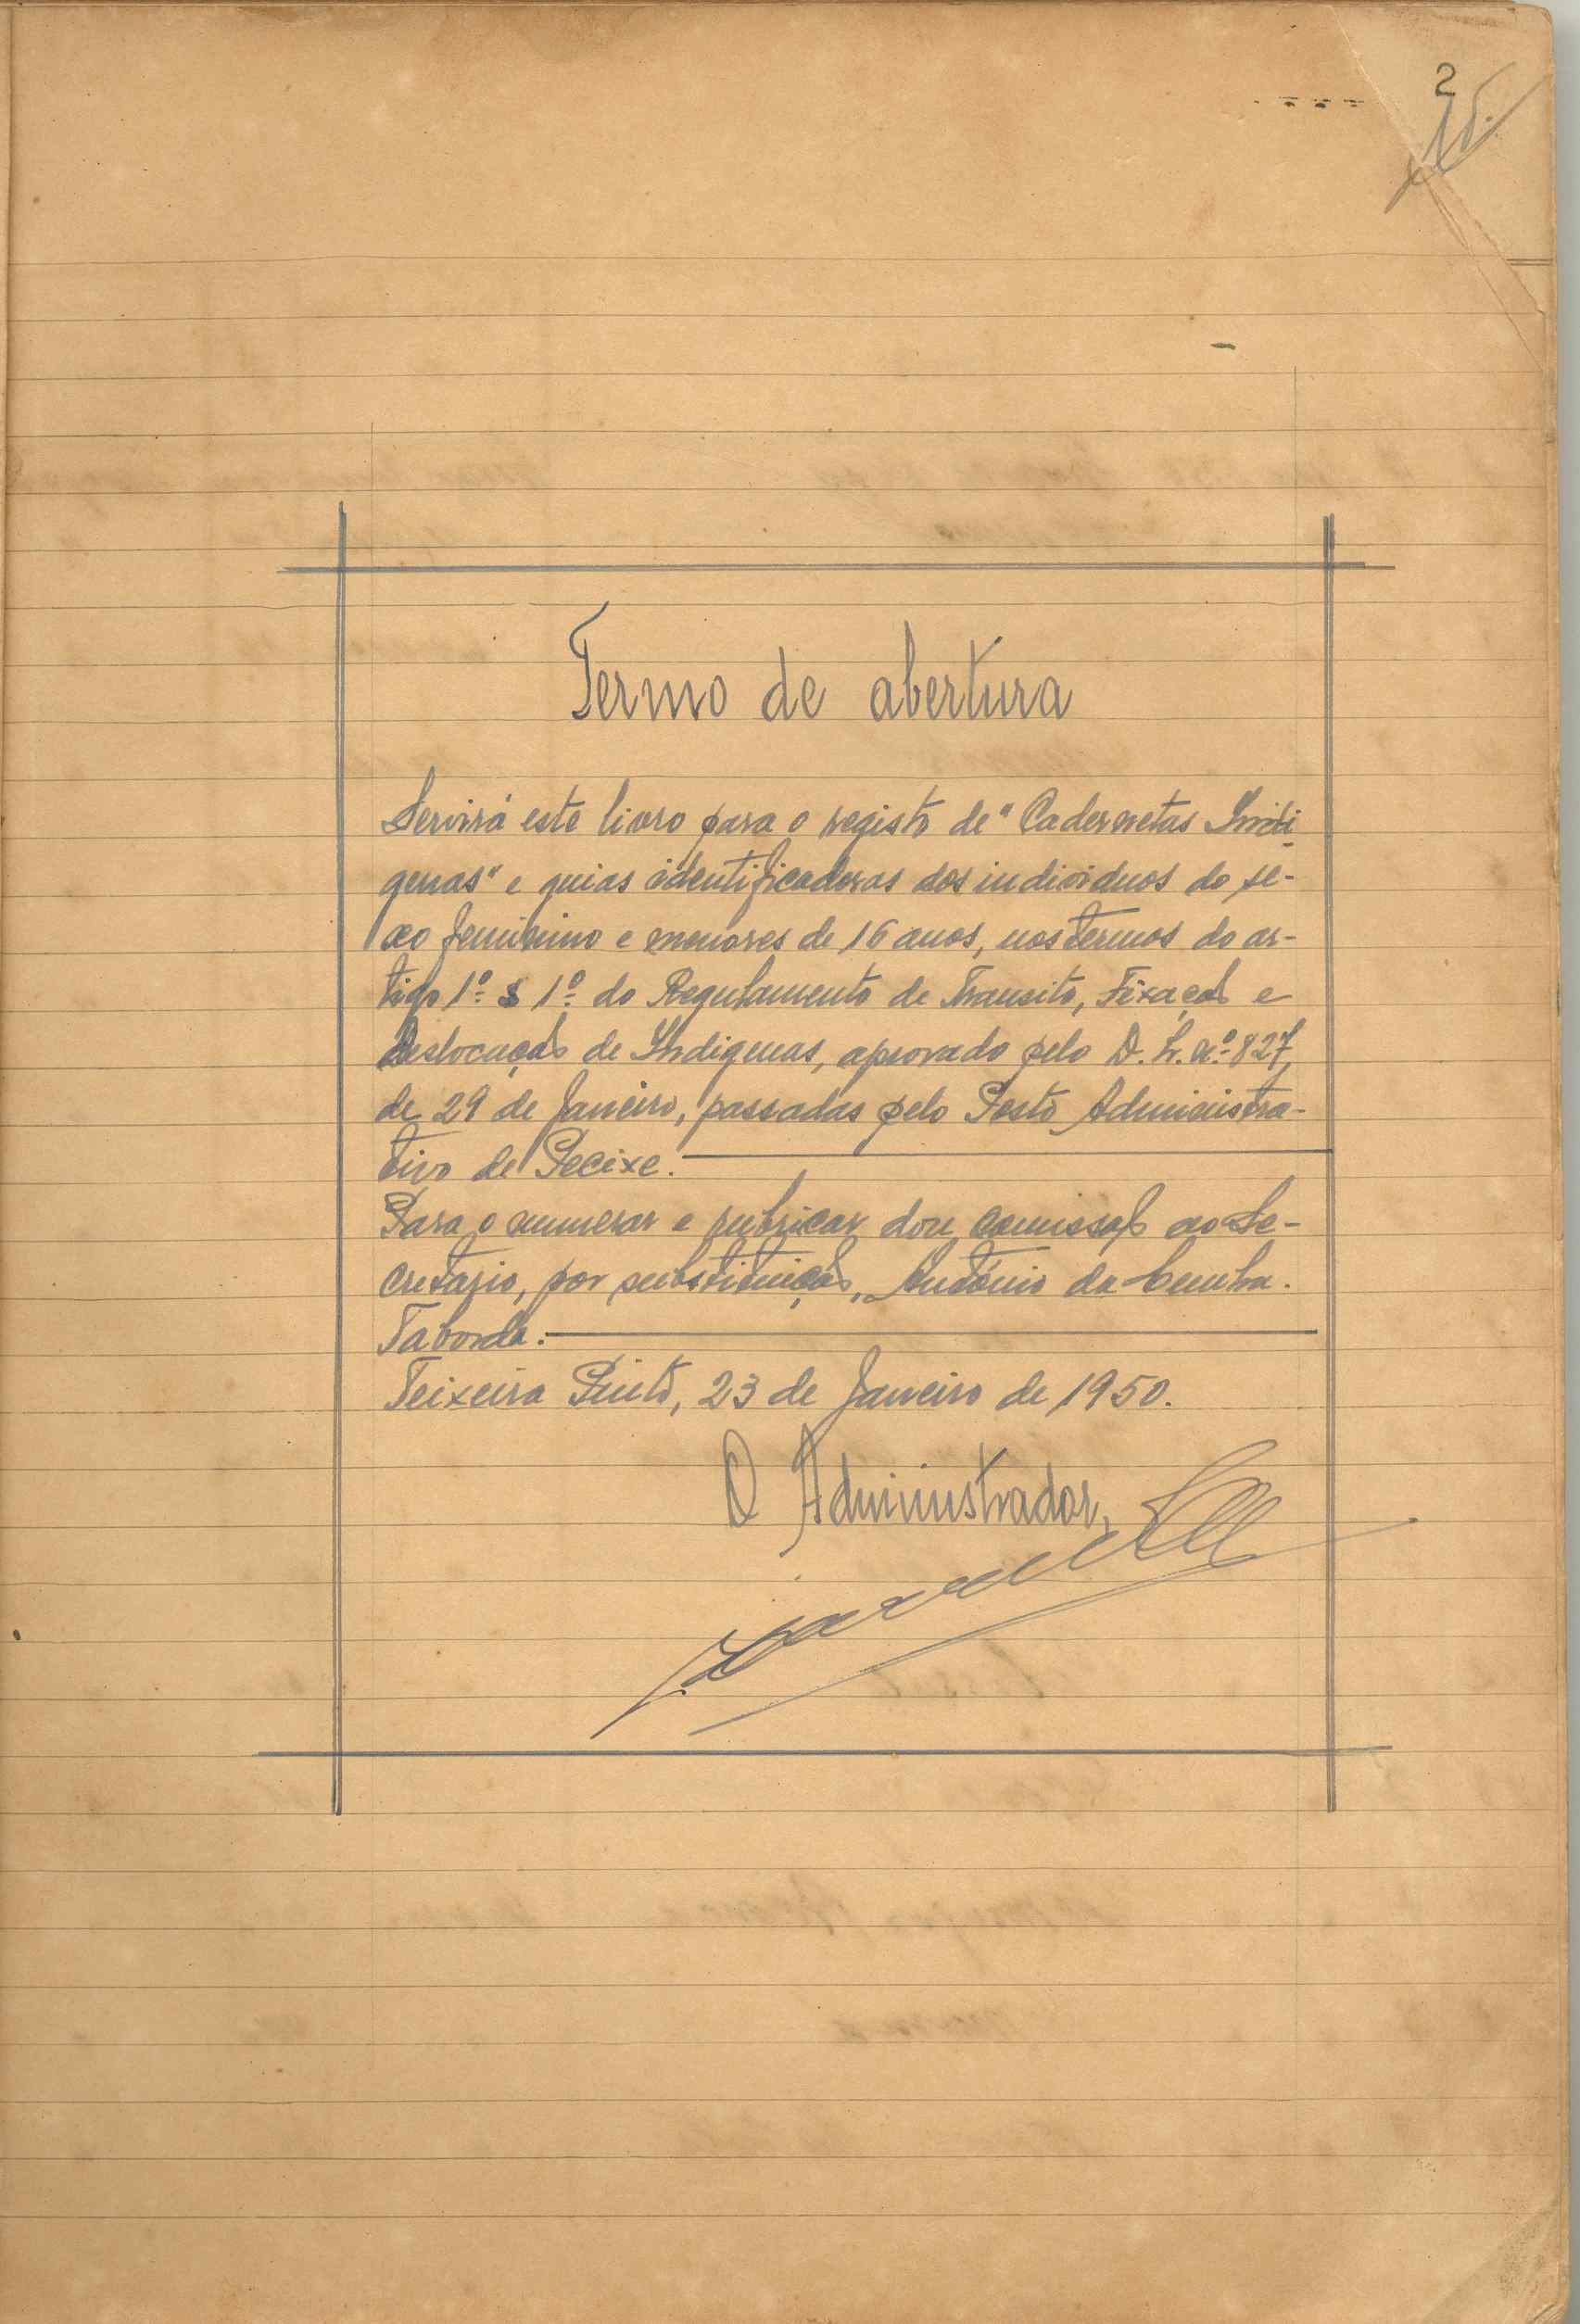 2
Termo de abertura
Servirá este livro para o registo de "Cadernetas Indi-
genas" e guias identificadoras dos individuos do se-
xo feminino e menores de 16 anos, nos termos do ar-
tigo 1º § 1º do Regulamento de Transito, Fixação e
Deslocação de Indigenas, aprovado pelo D. L. nº 827,
de 29 de Janeiro, passadas pelo Posto Administra-
tivo de Pecixe.
Para o numerar e rubricar dou comissão ao Se-
cretario, por substituição, António da Cunha
Taborda.
Teixeira Pinto, 23 de Janeiro de 1950.
O Administrador,